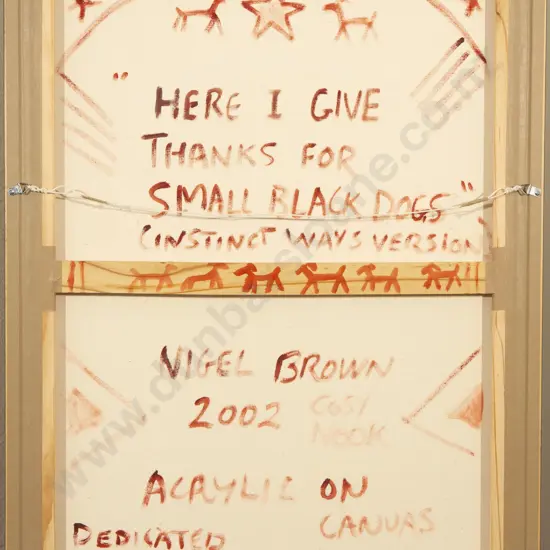 "HERE I GIVE
THANKS FOR
SMALL BLACK DOGS"
(INSTINCT WAYS VERSION)
NIGEL BROWN
2002 COSY
NOOK
ACRYLIC ON
CANVAS
DEDICATED